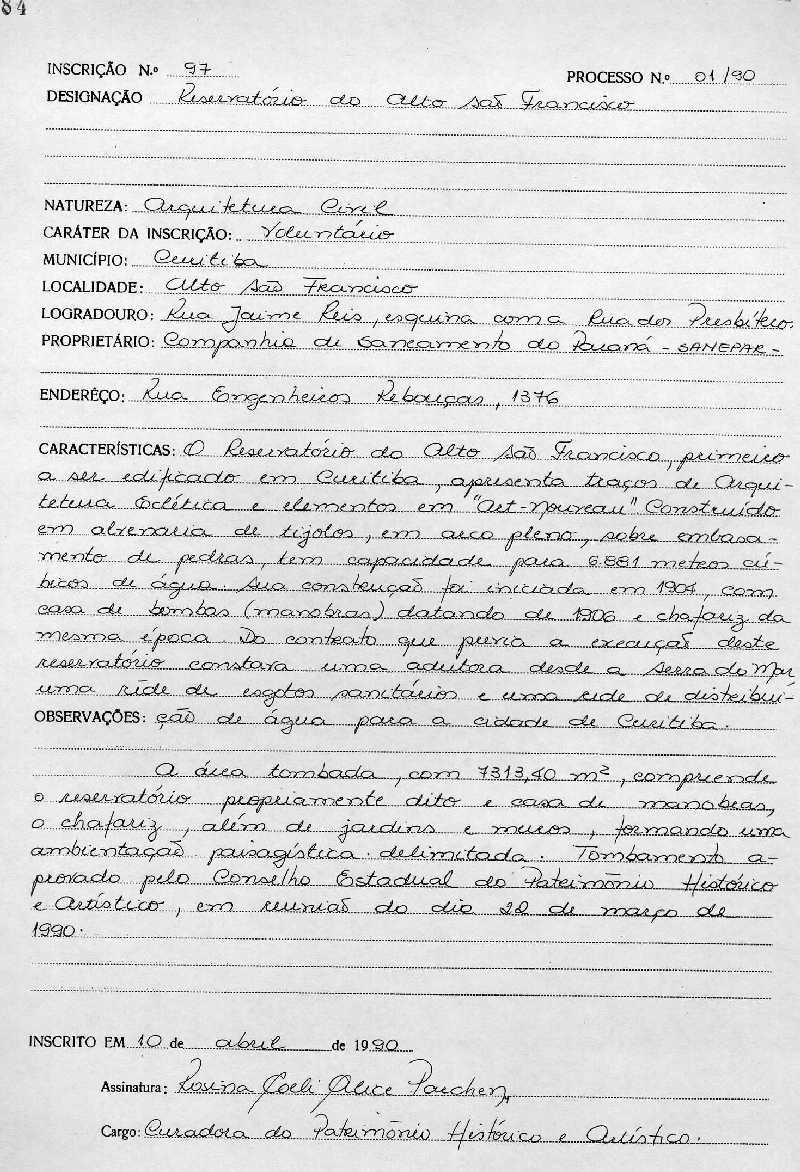 84
INSCRIÇÃO N.º 97 PROCESSO N.º 01/90
DESIGNAÇÃO Reservatório do Alto São Francisco
NATUREZA: Arquitetura Civil
CARÁTER DA INSCRIÇÃO: Voluntário
MUNICÍPIO: Curitiba
LOCALIDADE: Alto São Francisco
LOGRADOURO: Rua Jaime Reis, esquina com a Rua dos Presbítero.
PROPRIETÁRIO: Companhia de Saneamento do Paraná - SANEPAR -
ENDERÊÇO: Rua Engenheiros Rebouças, 1376
CARACTERÍSTICAS: O Reservatório do Alto São Francisco, primeiro
a ser edificado em Curitiba, apresenta traços de Arqui-
tetura Eclética e elementos em "Art-Nouveau". Construído
em alvenaria de tijolos, em arco pleno, sobre embasa-
mento de pedras, tem capacidade para 6.881 metros cú-
bicos de água. Sua construção foi iniciada em 1904, com
casa de bombas (manobras) datando de 1906 e chafariz da
mesma época. Do contrato que previa a execução deste
reservatório constava uma adutora desde a Serra do Mar,
uma rêde de esgotos sanitários e uma rede de distribui-
OBSERVAÇÕES: ção de água para a cidade de Curitiba.
A área tombada, com 7313,40 m², compreende
o reservatório propriamente dito e casa de manobras,
o chafariz, além de jardins e muros, formando uma
ambientação paisagística delimitada. Tombamento a-
provado pelo Conselho Estadual do Patrimônio Histórico
e Artístico, em reunião do dia 22 de março de
1990.
INSCRITO EM 10 de abril de 1990
Assinatura: Rosina Coeli Alice Parchen
Cargo: Curadora do Patrimônio Histórico e Artístico.